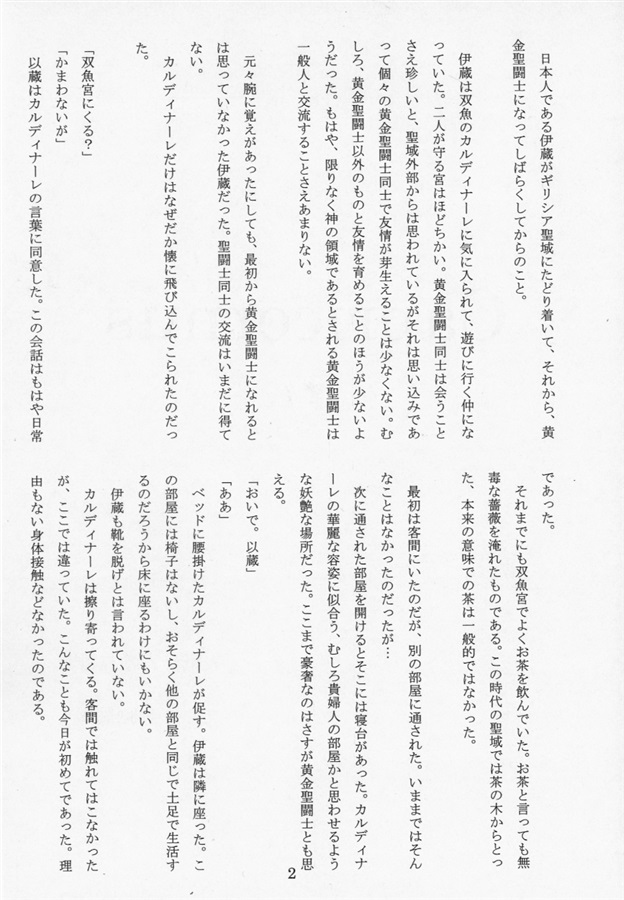 日本人である伊蔵がギリシア聖域にたどり着いて、それから、黄
金聖闘士になってしばらくしてからのこと。
伊蔵は双魚のカルディナーレに気に入られて、遊びに行く仲にな
っていた。二人が守る宮はほどちかい。黄金聖闘士同士は会うこと
さえ珍しいと、聖域外部からは思われているがそれは思い込みであ
って個々の黄金聖闘士同士で友情が芽生えることは少なくない。む
しろ、黄金聖闘士以外のものと友情を育めることのほうが少ないよ
うだった。もはや、限りなく神の領域であるとされる黄金聖闘士は
一般人と交流することさえあまりない。
元々腕に覚えがあったにしても、最初から黄金聖闘士になれると
は思っていなかった伊蔵だった。聖闘士同士の交流はいまだに得て
ない。
カルディナーレだけはなぜだか懐に飛び込んでこられたのだっ
た。
「双魚宮にくる？」
「かまわないが」
以蔵はカルディナーレの言葉に同意した。この会話はもはや日常
であった。
それまでにも双魚宮でよくお茶を飲んでいた。お茶と言っても無
毒な薔薇を淹れたものである。この時代の聖域では茶の木からとっ
た、本来の意味での茶は一般的ではなかった。
最初は客間にいたのだが、別の部屋に通された。いままではそん
なことはなかったのだったが…
次に通された部屋を開けるとそこには寝台があった。カルディナ
ーレの華麗な容姿に似合う、むしろ貴婦人の部屋かと思わせるよう
な妖艶な場所だった。ここまで豪奢なのはさすが黄金聖闘士とも思
える。
「おいで。以蔵」
「ああ」
ベッドに腰掛けたカルディナーレが促す。伊蔵は隣に座った。こ
の部屋には椅子はないし、おそらく他の部屋と同じで土足で生活す
るのだろうから床に座るわけにもいかない。
伊蔵も靴を脱げとは言われていない。
カルディナーレは擦り寄ってくる。客間では触れてはこなかった
が、ここでは違っていた。こんなことも今日が初めてであった。理
由もない身体接触などなかったのである。
2